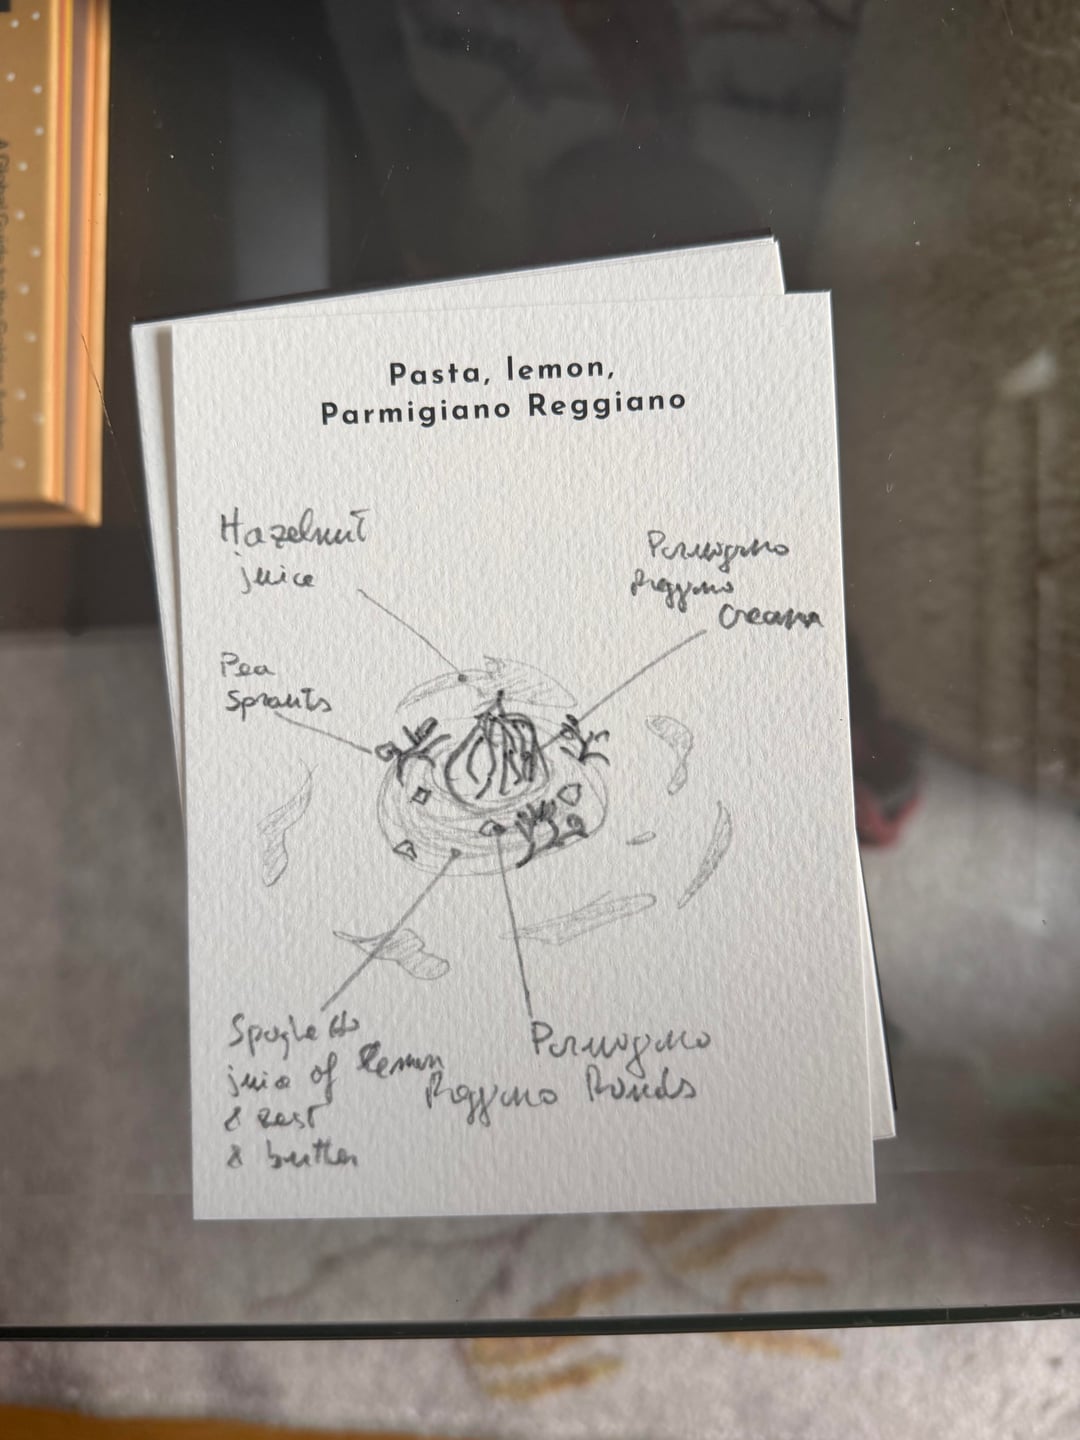 Pasta, lemon,
Parmigiano Reggiano
Hazelnut
juice
Parmigiano
Reggiano
Cream
Pea
Sprouts
Spaghetto
juice of lemon
& zest
& butter
Parmigiano
Reggiano
A Global Guide to the